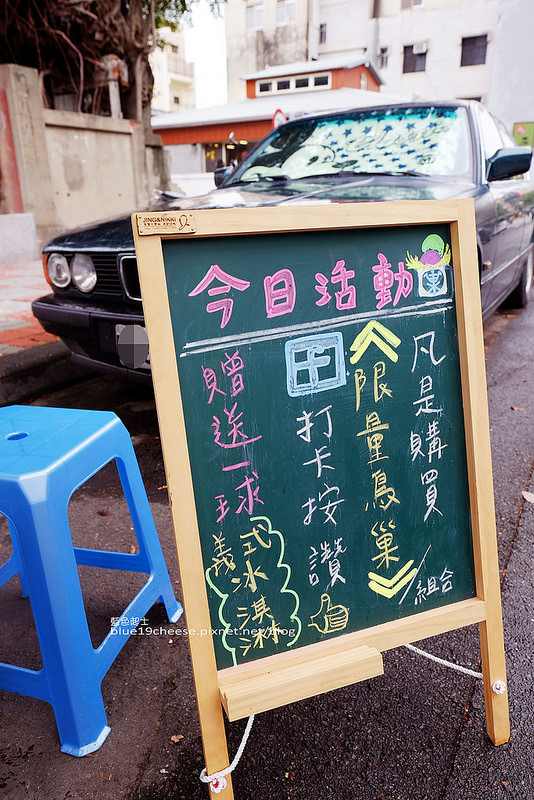 JING&NIKKI
今日活動
凡是購買
限量鳥巢/組合
打卡按讚
贈送一球
義式冰淇淋
藍色起士
blue19cheese.pixnet.net/blog